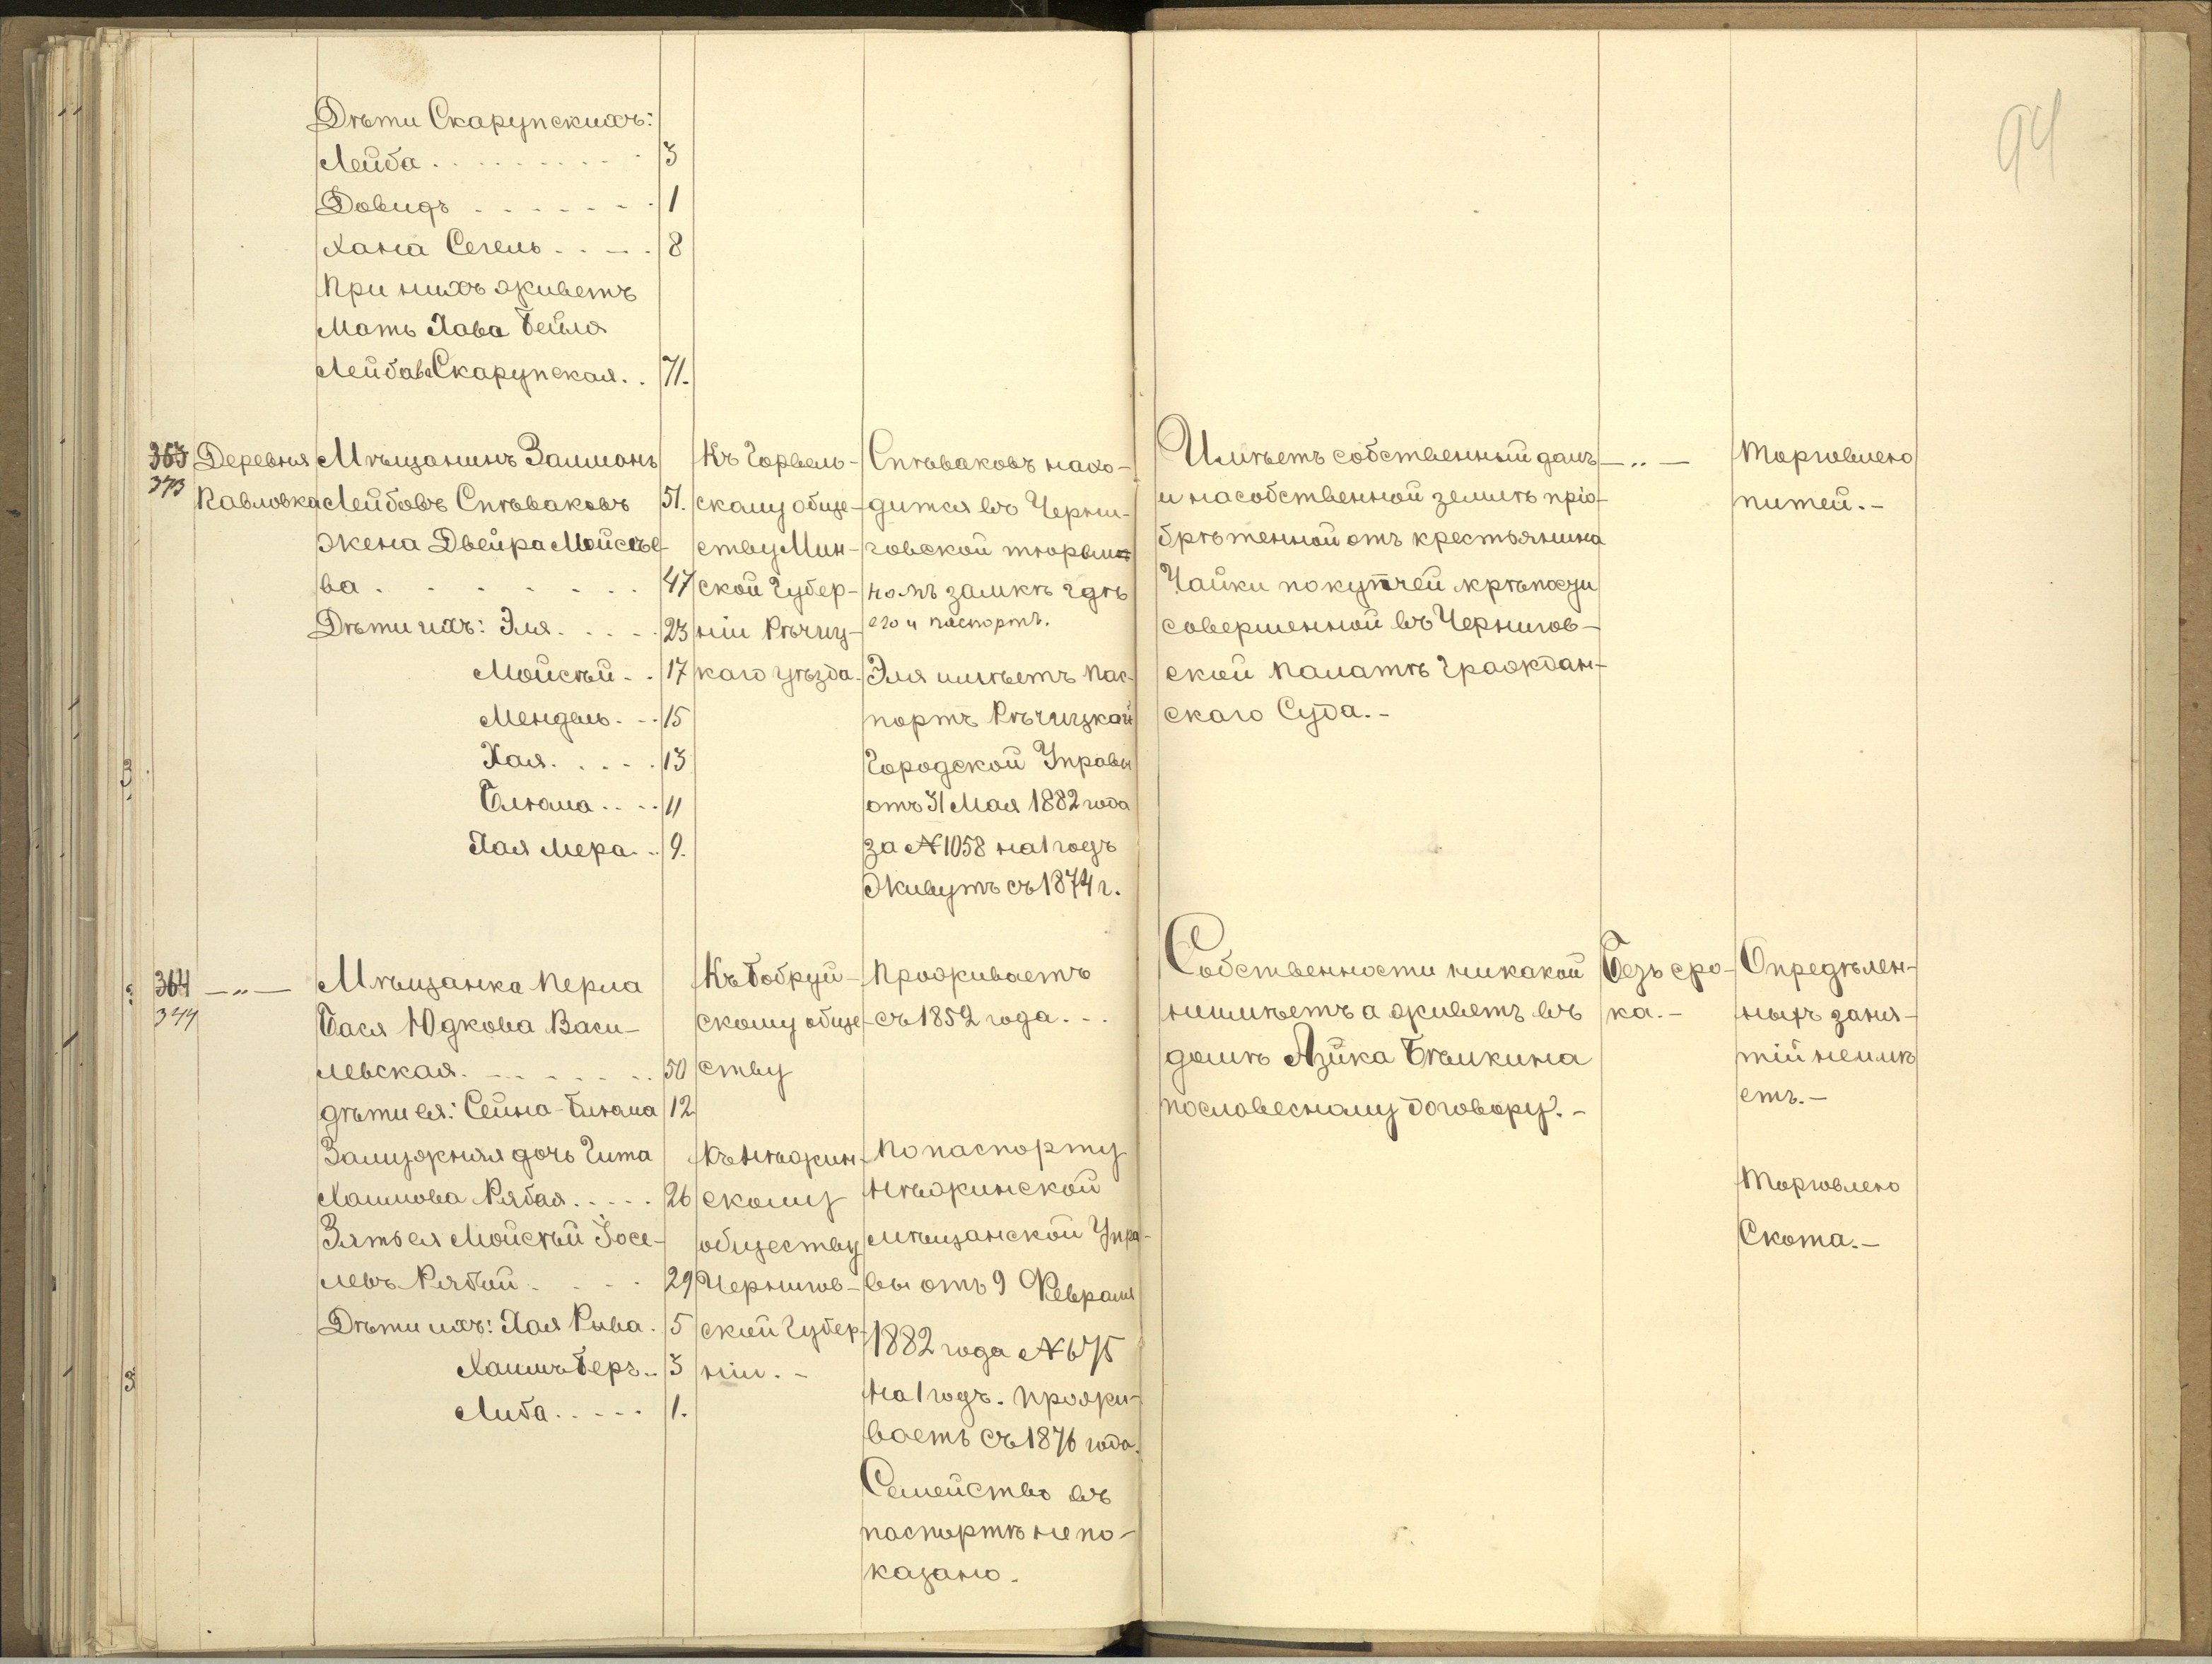 94
Дѣти Скарупскихъ:
Лейба . . . . . . . . . 3
Довидъ . . . . . . . 1
Хана Сегель . . . . 8
При нихъ живетъ
Мать Хава Бейля
Лейбова Скарупская . . 71.
363
373
Деревня
Павловка
Мѣщанинъ Залманъ
Лейбовъ Спѣваковъ 51.
Жена Двейра Мойсѣе-
ва . . . . . . . 47
Дѣти ихъ: Эля . . . . 23
Мойсѣй . . 17
Мендель . . . 15
Хая . . . . . 13
Блюма . . . . 11
Хая Мера . . 9.
Къ Горвель-
скому обще-
ству Мин-
ской Губер-
ніи Рѣчиц-
каго уѣзда.
Спѣваковъ нахо-
дится въ Черни-
говской тюрьм
номъ замкѣ гдѣ
его и паспортъ.
Эля имѣетъ пас-
портъ Рѣчицкой
Городской Управы
отъ 31 Мая 1882 года
за № 1058 на 1 годъ
Живутъ съ 1874 г.
Имѣетъ собственный домъ
и на собственной землѣ прі-
обрѣтенной отъ крестьянина
Чайки по купчей крѣпости
совершенной въ Чернигов-
ской Палатѣ Граждан-
скаго Суда. -
— „ —
Торговлею
питей. -
364
374
— „ —
Мѣщанка Перла
Бася Юдкова Васи-
левская . . . . . . . 50
дѣти ея: Сейна-Блюма 12
Замужняя дочь Гита
Хаимова Рябая . . . . 26
Зять ея Мойсѣй Іосе-
левъ Рябой . . . . 29
Дѣти ихъ: Хая Рыва . 5
Хаимъ Беръ . . 3
Либа . . . . . 1.
Къ Бобруй-
скому обще-
ству
Къ Нѣжин-
скому
обществу
Чернигов-
ской Губер-
ніи. -
Проживаетъ
съ 1852 года. . -
По паспорту
Нѣжинской
мѣщанской Упра-
вы отъ 9 Февраля
1882 года № 675
на 1 годъ. Прожи-
ваетъ съ 1876 года.
Семейство въ
паспортѣ не по-
казано.
Собственности никакой
неимѣетъ а живетъ въ
домѣ Азика Бѣлкина
по словесному договору. -
Безъ сро-
ка. -
Опредѣлен-
ныхъ заня-
тій неимѣ
етъ. -
Торговлею
Скота. -